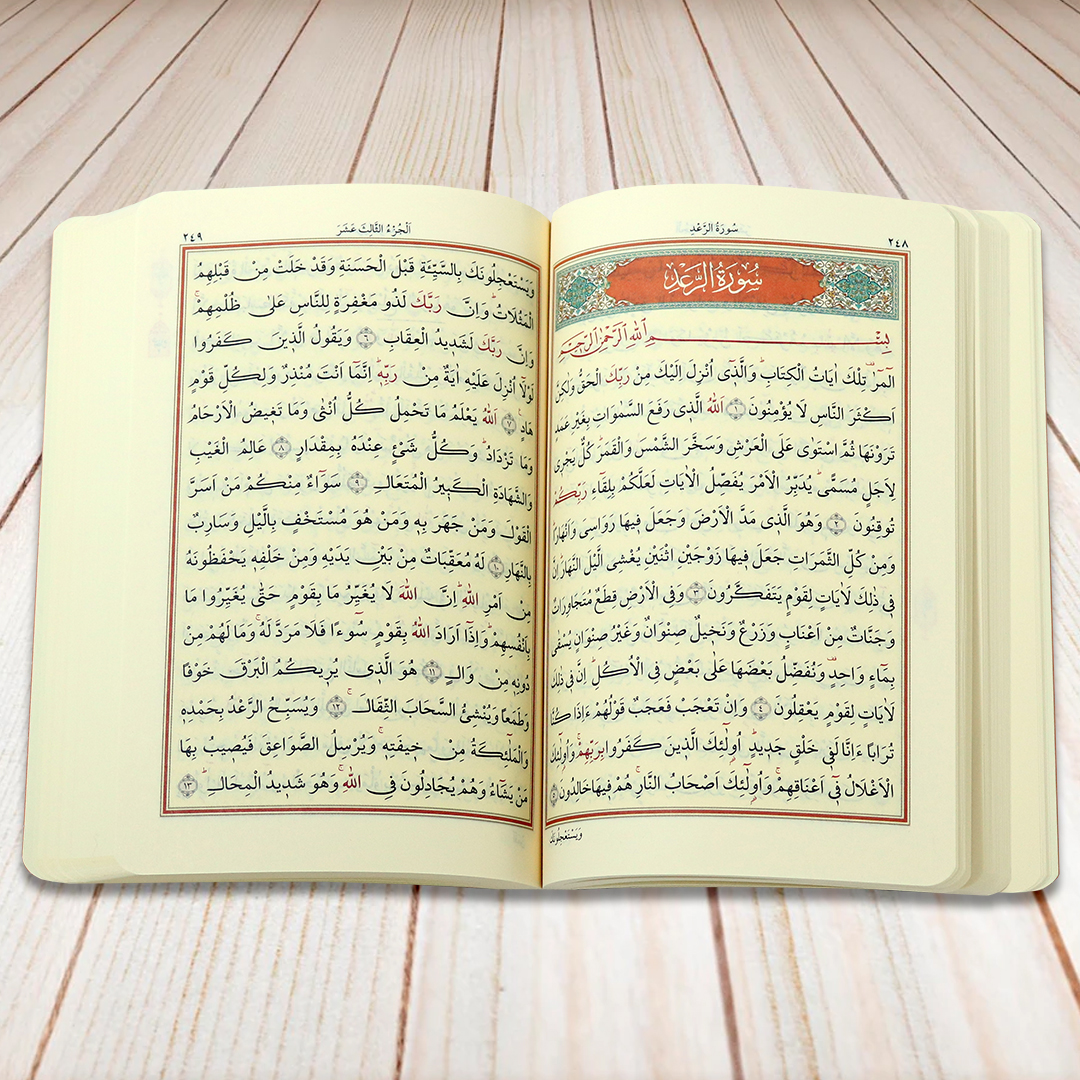 سُورَةُ الرَّعْدِ
٢٤٨
سُورَةُ الرَّعْدِ
بِسْــــــمِ اللّٰهِ الرَّحْمٰنِ الرَّحٖيمِ
الٓمٓرٰ۠ تِلْكَ اٰيَاتُ الْكِتَابِؕ وَالَّذٖٓى اُنْزِلَ اِلَيْكَ مِنْ رَبِّكَ الْحَقُّ وَلٰكِنَّ
اَكْثَرَ النَّاسِ لَا يُؤْمِنُونَ ﴿١﴾ اَللّٰهُ الَّذٖى رَفَعَ السَّمٰوَاتِ بِغَيْرِ عَمَدٍ
تَرَوْنَهَا ثُمَّ اسْتَوٰى عَلَى الْعَرْشِ وَسَخَّرَ الشَّمْسَ وَالْقَمَرَؕ كُلٌّ يَجْرٖى
لِاَجَلٍ مُسَمًّىؕ يُدَبِّرُ الْاَمْرَ يُفَصِّلُ الْاٰيَاتِ لَعَلَّكُمْ بِلِقَٓاءِ رَبِّكُمْ
تُوقِنُونَ ﴿٢﴾ وَهُوَ الَّذٖى مَدَّ الْاَرْضَ وَجَعَلَ فٖيهَا رَوَاسِىَ وَاَنْهَارًاؕ
وَمِنْ كُلِّ الثَّمَرَاتِ جَعَلَ فٖيهَا زَوْجَيْنِ اثْنَيْنِ يُغْشِى الَّيْلَ النَّهَارَؕ اِنَّ
فٖى ذٰلِكَ لَاٰيَاتٍ لِقَوْمٍ يَتَفَكَّرُونَ ﴿٣﴾ وَفِى الْاَرْضِ قِطَعٌ مُتَجَاوِرَاتٌ
وَجَنَّاتٌ مِنْ اَعْنَابٍ وَزَرْعٌ وَنَخٖيلٌ صِنْوَانٌ وَغَيْرُ صِنْوَانٍ يُسْقٰى
بِمَٓاءٍ وَاحِدٍ۠ وَنُفَضِّلُ بَعْضَهَا عَلٰى بَعْضٍ فِى الْاُكُلِؕ اِنَّ فٖى ذٰلِكَ
لَاٰيَاتٍ لِقَوْمٍ يَعْقِلُونَ ﴿٤﴾ وَاِنْ تَعْجَبْ فَعَجَبٌ قَوْلُهُمْ ءَاِذَا كُنَّا
تُرَابًا ءَاِنَّا لَفٖى خَلْقٍ جَدٖيدٍؕ اُو۬لٰٓئِكَ الَّذٖينَ كَفَرُوا بِرَبِّهِمْۚ وَاُو۬لٰٓئِكَ
الْاَغْلَالُ فٖٓى اَعْنَاقِهِمْۚ وَاُو۬لٰٓئِكَ اَصْحَابُ النَّارِۚ هُمْ فٖيهَا خَالِدُونَ ﴿٥﴾
وَيَسْتَعْجِلُونَكَ
اَلْجُزْءُ الثَّالِثَ عَشَرَ
٢٤٩
وَيَسْتَعْجِلُونَكَ بِالسَّيِّئَةِ قَبْلَ الْحَسَنَةِ وَقَدْ خَلَتْ مِنْ قَبْلِهِمُ
الْمَثُلَاتُؕ وَاِنَّ رَبَّكَ لَذُو مَغْفِرَةٍ لِلنَّاسِ عَلٰى ظُلْمِهِمْۚ
وَاِنَّ رَبَّكَ لَشَدٖيدُ الْعِقَابِ ﴿٦﴾ وَيَقُولُ الَّذٖينَ كَفَرُوا
لَوْلَٓا اُنْزِلَ عَلَيْهِ اٰيَةٌ مِنْ رَبِّهٖؕ اِنَّمَٓا اَنْتَ مُنْذِرٌ وَلِكُلِّ قَوْمٍ
هَادٍ۟ ﴿٧﴾ اَللّٰهُ يَعْلَمُ مَا تَحْمِلُ كُلُّ اُنْثٰى وَمَا تَغٖيضُ الْاَرْحَامُ
وَمَا تَزْدَادُؕ وَكُلُّ شَىْءٍ عِنْدَهُ بِمِقْدَارٍ ﴿٨﴾ عَالِمُ الْغَيْبِ
وَالشَّهَادَةِ الْكَبٖيرُ الْمُتَعَالِ ﴿٩﴾ سَوَٓاءٌ مِنْكُمْ مَنْ اَسَرَّ
الْقَوْلَ وَمَنْ جَهَرَ بِهٖ وَمَنْ هُوَ مُسْتَخْفٍ بِالَّيْلِ وَسَارِبٌ
بِالنَّهَارِ ﴿١٠﴾ لَهُ مُعَقِّبَاتٌ مِنْ بَيْنِ يَدَيْهِ وَمِنْ خَلْفِهٖ يَحْفَظُونَهُ
مِنْ اَمْرِ اللّٰهِؕ اِنَّ اللّٰهَ لَا يُغَيِّرُ مَا بِقَوْمٍ حَتّٰى يُغَيِّرُوا مَا
بِاَنْفُسِهِمْؕ وَاِذَٓا اَرَادَ اللّٰهُ بِقَوْمٍ سُٓوءًا فَلَا مَرَدَّ لَهُۚ وَمَا لَهُمْ مِنْ
دُونِهٖ مِنْ وَالٍ ﴿١١﴾ هُوَ الَّذٖى يُرٖيكُمُ الْبَرْقَ خَوْفًا
وَطَمَعًا وَيُنْشِئُ السَّحَابَ الثِّقَالَۚ ﴿١٢﴾ وَيُسَبِّحُ الرَّعْدُ بِحَمْدِهٖ
وَالْمَلٰٓئِكَةُ مِنْ خٖيفَتِهٖۚ وَيُرْسِلُ الصَّوَاعِقَ فَيُصٖيبُ بِهَا
مَنْ يَشَٓاءُ وَهُمْ يُجَادِلُونَ فِى اللّٰهِۚ وَهُوَ شَدٖيدُ الْمِحَالِؕ ﴿١٣﴾